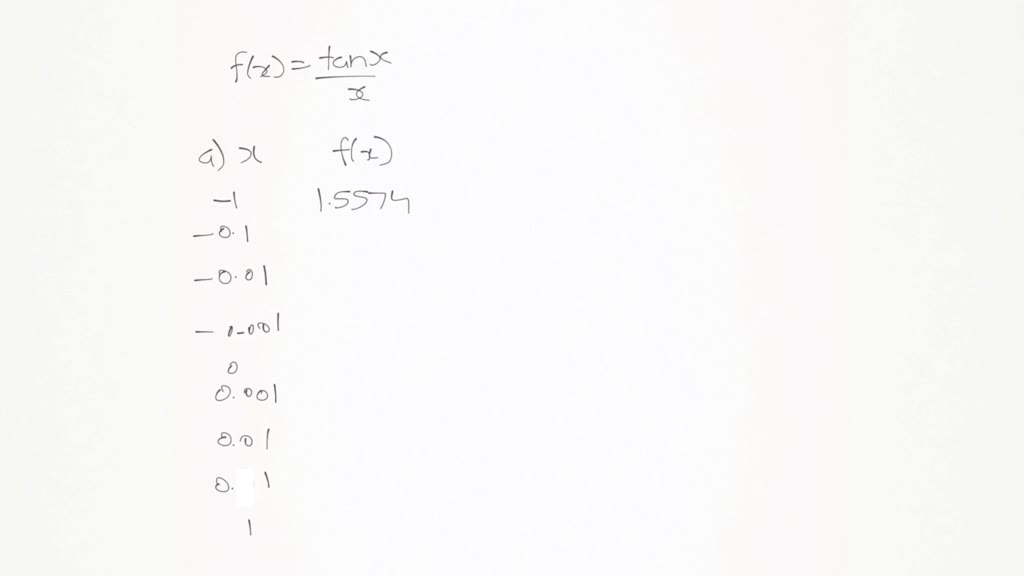 f(x) = tanx / x
a) x f(x)
-1 1.5574
-0.1
-0.01
-0.001
0
0.001
0.01
0. 1
1